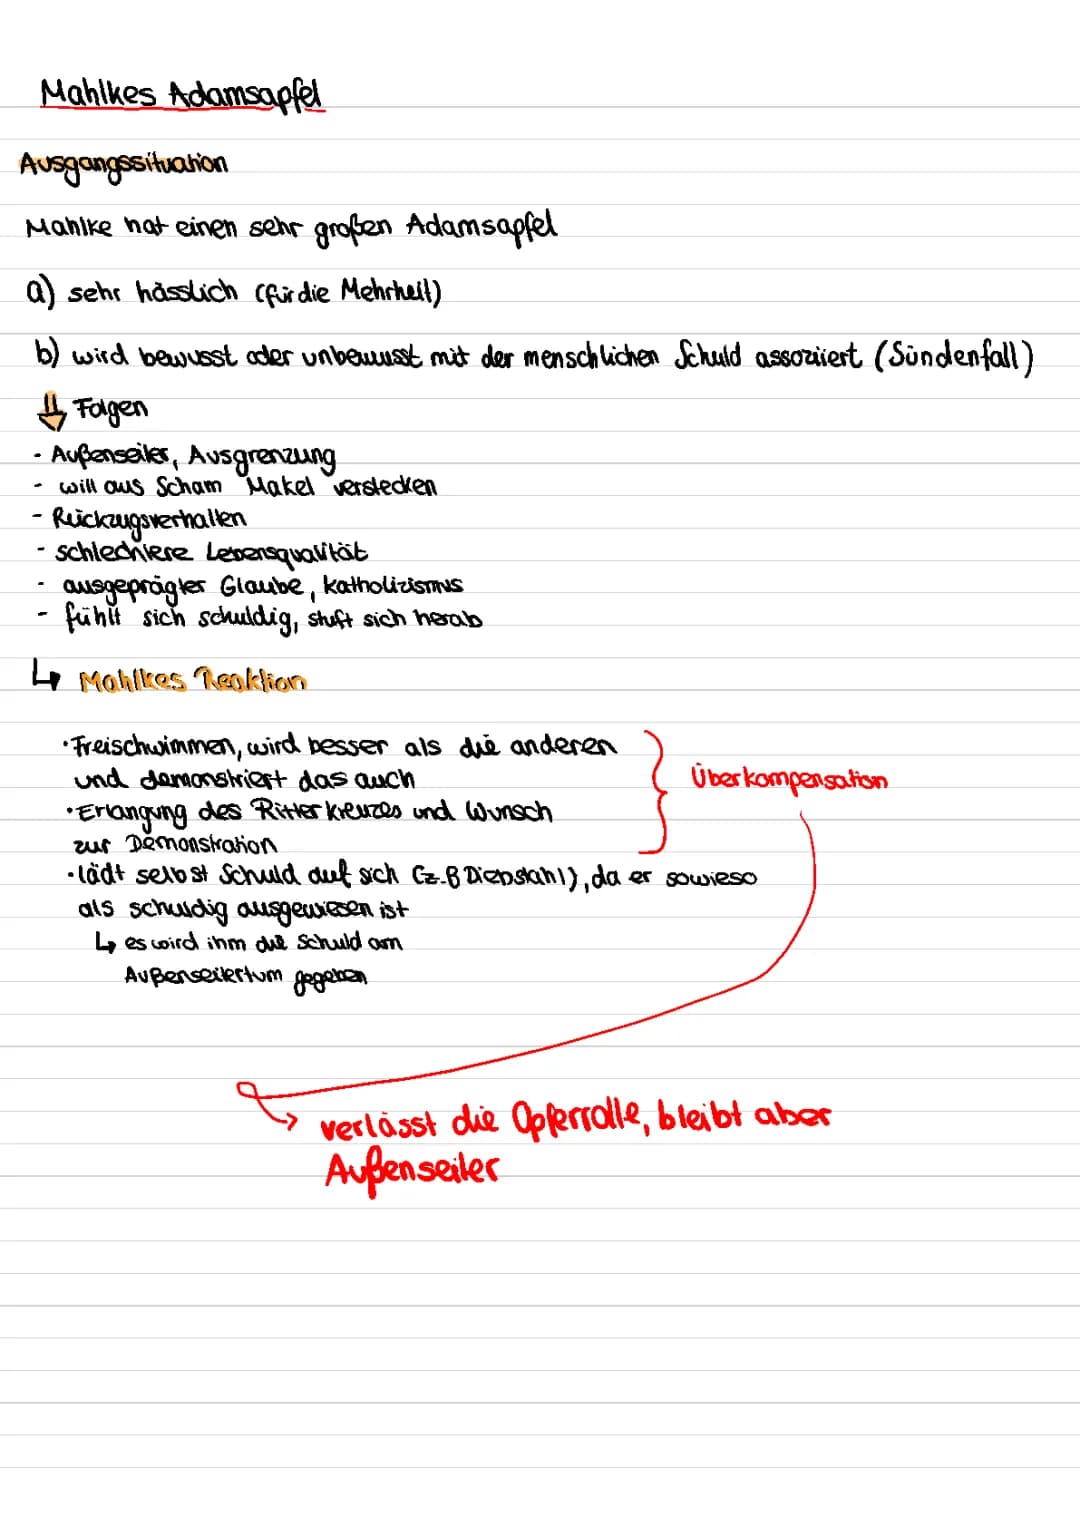 Mahlkes Adamsapfel
Ausgangssituation
Mahlke hat einen sehr großen Adamsapfel
a) sehr hässlich (für die Mehrheit)
b) wird bewusst oder unbewusst mit der menschlichen Schuld assoziiert (Sündenfall)
⇓ Folgen
- Außenseiter, Ausgrenzung
- will aus Scham Makel verstecken
- Rückzugsverhalten
- schlechtere Lebensqualität
- ausgeprägter Glaube, Katholizismus
- fühlt sich schuldig, stuft sich herab
↳ Mahlkes Reaktion
·Freischwimmen, wird besser als die anderen
und demonstriert das auch
Überkompensation
·Erlangung des Ritterkreuzes und Wunsch
zur Demonstration
·lädt selbst Schuld auf sich (z.B Diebstahl), da er sowieso
als schuldig ausgewiesen ist
↳ es wird ihm die Schuld am
Außenseitertum gegeben
→ verlässt die Opferrolle, bleibt aber
Außenseiter